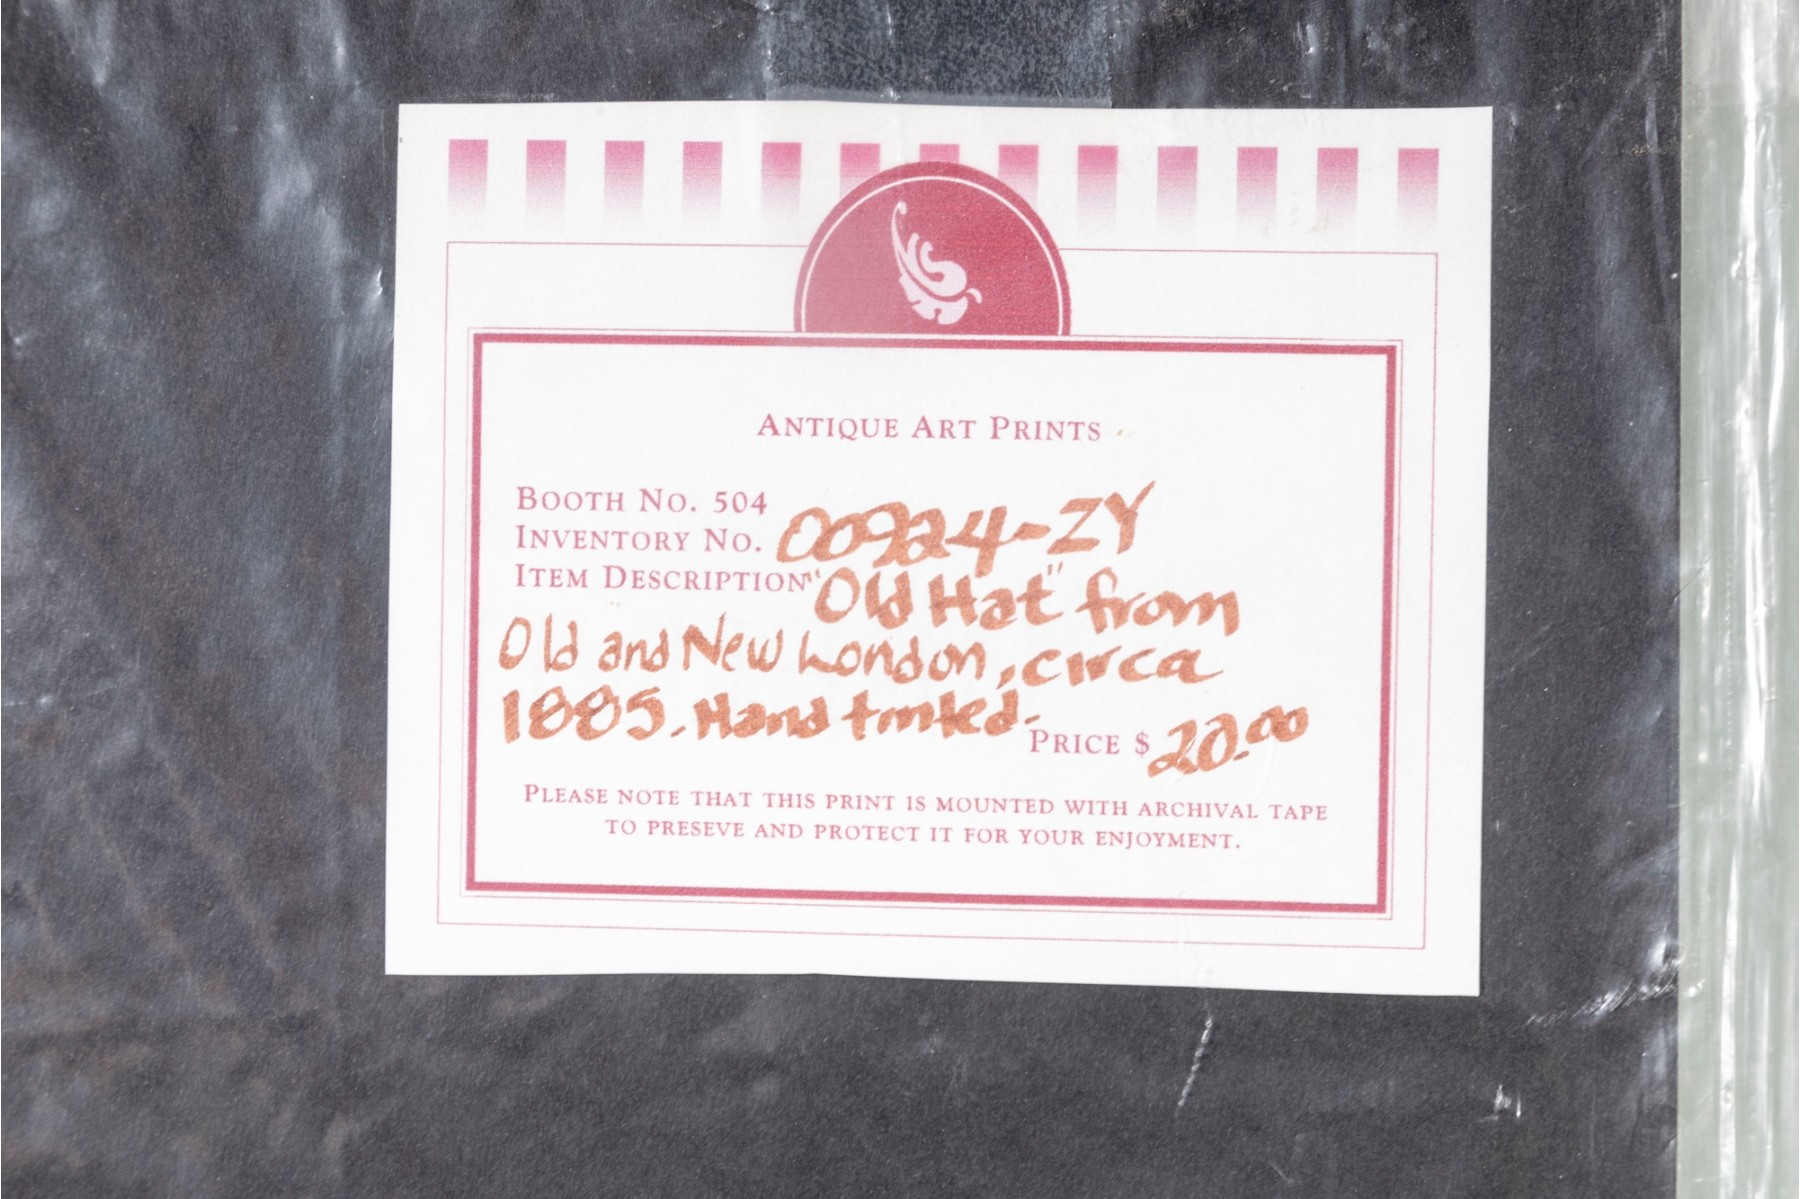 ANTIQUE ART PRINTS
BOOTH NO. 504
INVENTORY NO. 00924-ZY
ITEM DESCRIPTION "Old Hat" from
Old and New London, circa
1885. Hand tinted.
PRICE $ 20.00
PLEASE NOTE THAT THIS PRINT IS MOUNTED WITH ARCHIVAL TAPE
TO PRESEVE AND PROTECT IT FOR YOUR ENJOYMENT.